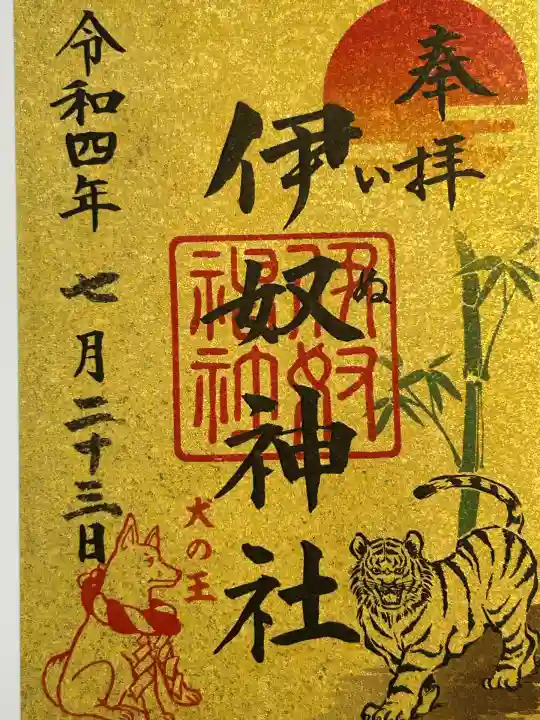 奉拝
伊奴神社
いぬ
伊奴
神社
犬の王
令和四年 七月二十三日